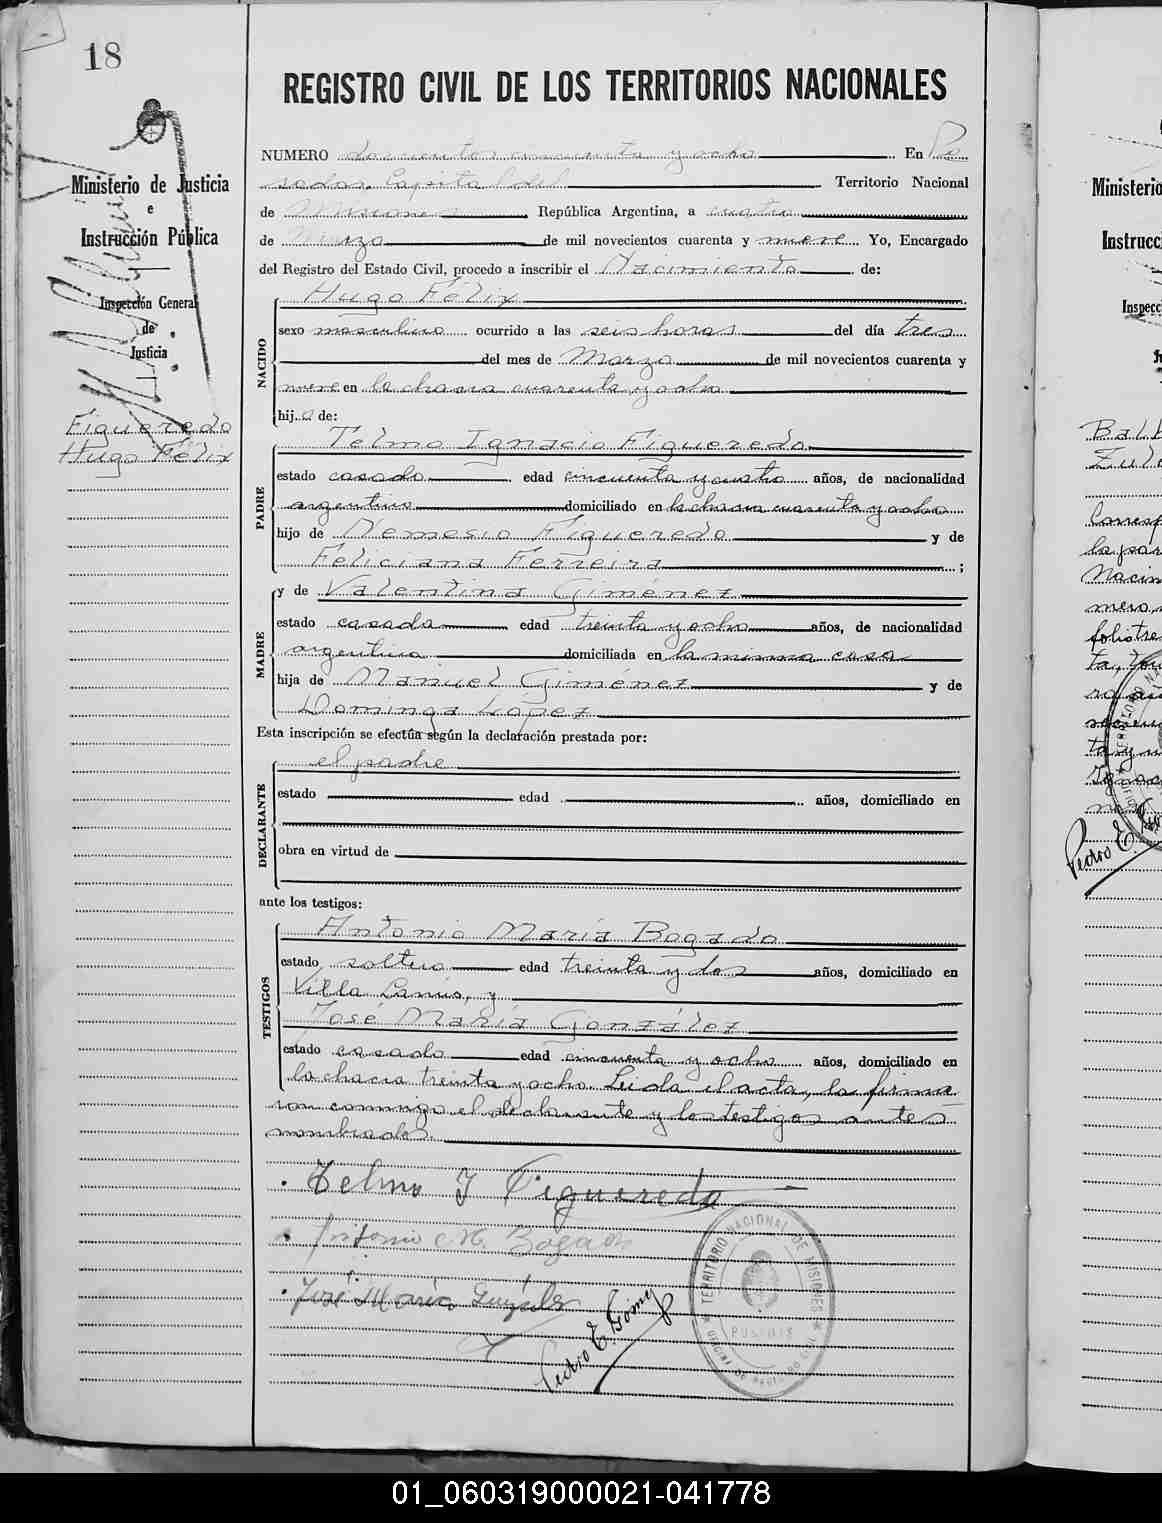 18
REGISTRO CIVIL DE LOS TERRITORIOS NACIONALES
Ministerio de Justicia
e
Instrucción Pública
Inspección General
de
Justicia
Figueredo
Hugo Félix
NUMERO doscientos cincuenta y ocho En Po
sadas, Capital del Territorio Nacional
de Misiones República Argentina, a cuatro
de Marzo de mil novecientos cuarenta y nueve Yo, Encargado
del Registro del Estado Civil, procedo a inscribir el Nacimiento de:
NACIDO
Hugo Félix
sexo masculino ocurrido a las seis horas del día tres
del mes de Marzo de mil novecientos cuarenta y
nueve en la chacra cuarenta y ocho
hijo de:
PADRE
Telmo Ignacio Figueredo
estado casado edad cincuenta y cuatro años, de nacionalidad
argentino domiciliado en la chacra cuarenta y ocho
hijo de Nemesio Figueredo y de
Feliciana Ferreira;
MADRE
y de Valentina Giménez
estado casada edad treinta y ocho años, de nacionalidad
argentina domiciliada en la misma casa
hija de Manuel Giménez y de
Dominga López
Esta inscripción se efectúa según la declaración prestada por:
DECLARANTE
el padre
estado edad años, domiciliado en
obra en virtud de
ante los testigos:
TESTIGOS
Antonio María Bogado
estado soltero edad treinta y dos años, domiciliado en
Villa Lanús, y
José María González
estado casado edad cincuenta y ocho años, domiciliado en
la chacra treinta y ocho. Leída el acta, la firma
ron conmigo el declarante y los testigos antes
nombrados.
Telmo I Figueredo
Antonio M. Bogado
José María González
Pedro E. Gómez
TERRITORIO NACIONAL DE MISIONES
POSADAS
Ministerio
Instrucc
Inspecc
Ju
Pedro E. Go
01_060319000021-041778